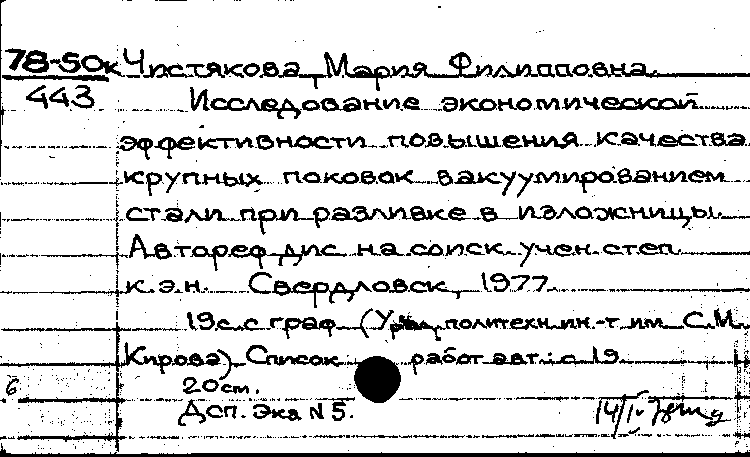 78-50к Чистякова, Мария Филипповна.
443 Исследование экономической
эффективности повышения качества
крупных поковок вакуумированием
стали при разливке в изложницы.
Автореф. дис. на соиск. учен. степ.
к.э.н. Свердловск, 1977
19 с. с граф. (Урал. политехн. ин-т им. С.М.
Кирова). Список работ авт.: с. 19.
6 20 см.
Дсп. Экз N 5.
14/IV-78